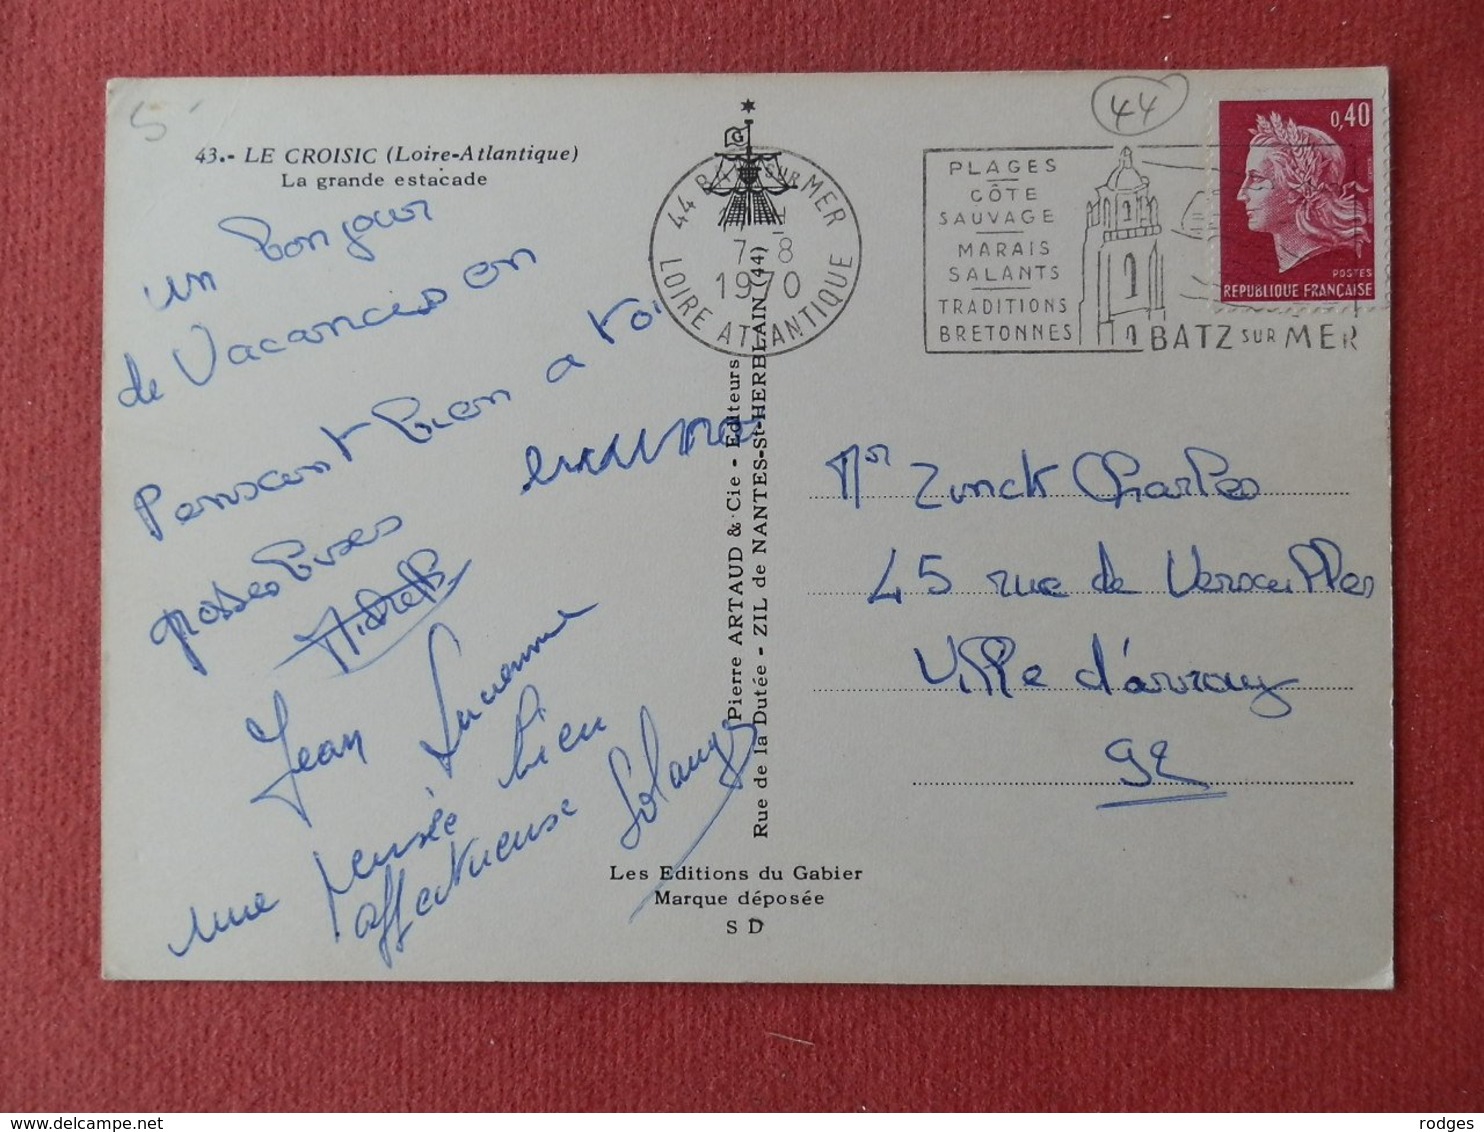 5
43.- LE CROISIC (Loire-Atlantique)
La grande estacade
un bonjour
de Vacances en
Pensant bien a toi
grosses bises
Jean Lucienne
une pensée bien
affectueuse Solange
G
44 BATZ SUR MER
7-8
1970
LOIRE ATLANTIQUE
Pierre ARTAUD & Cie - Editeurs
Rue de la Dutée - ZIL de NANTES-St-HERBLAIN (44)
Les Editions du Gabier
Marque déposée
S D
44
PLAGES
CÔTE
SAUVAGE
MARAIS
SALANTS
TRADITIONS
BRETONNES
BATZ SUR MER
0,40
POSTES
REPUBLIQUE FRANÇAISE
Mr Zunck Charles
45 rue de Versailles
Ville d'avray
92
rodges